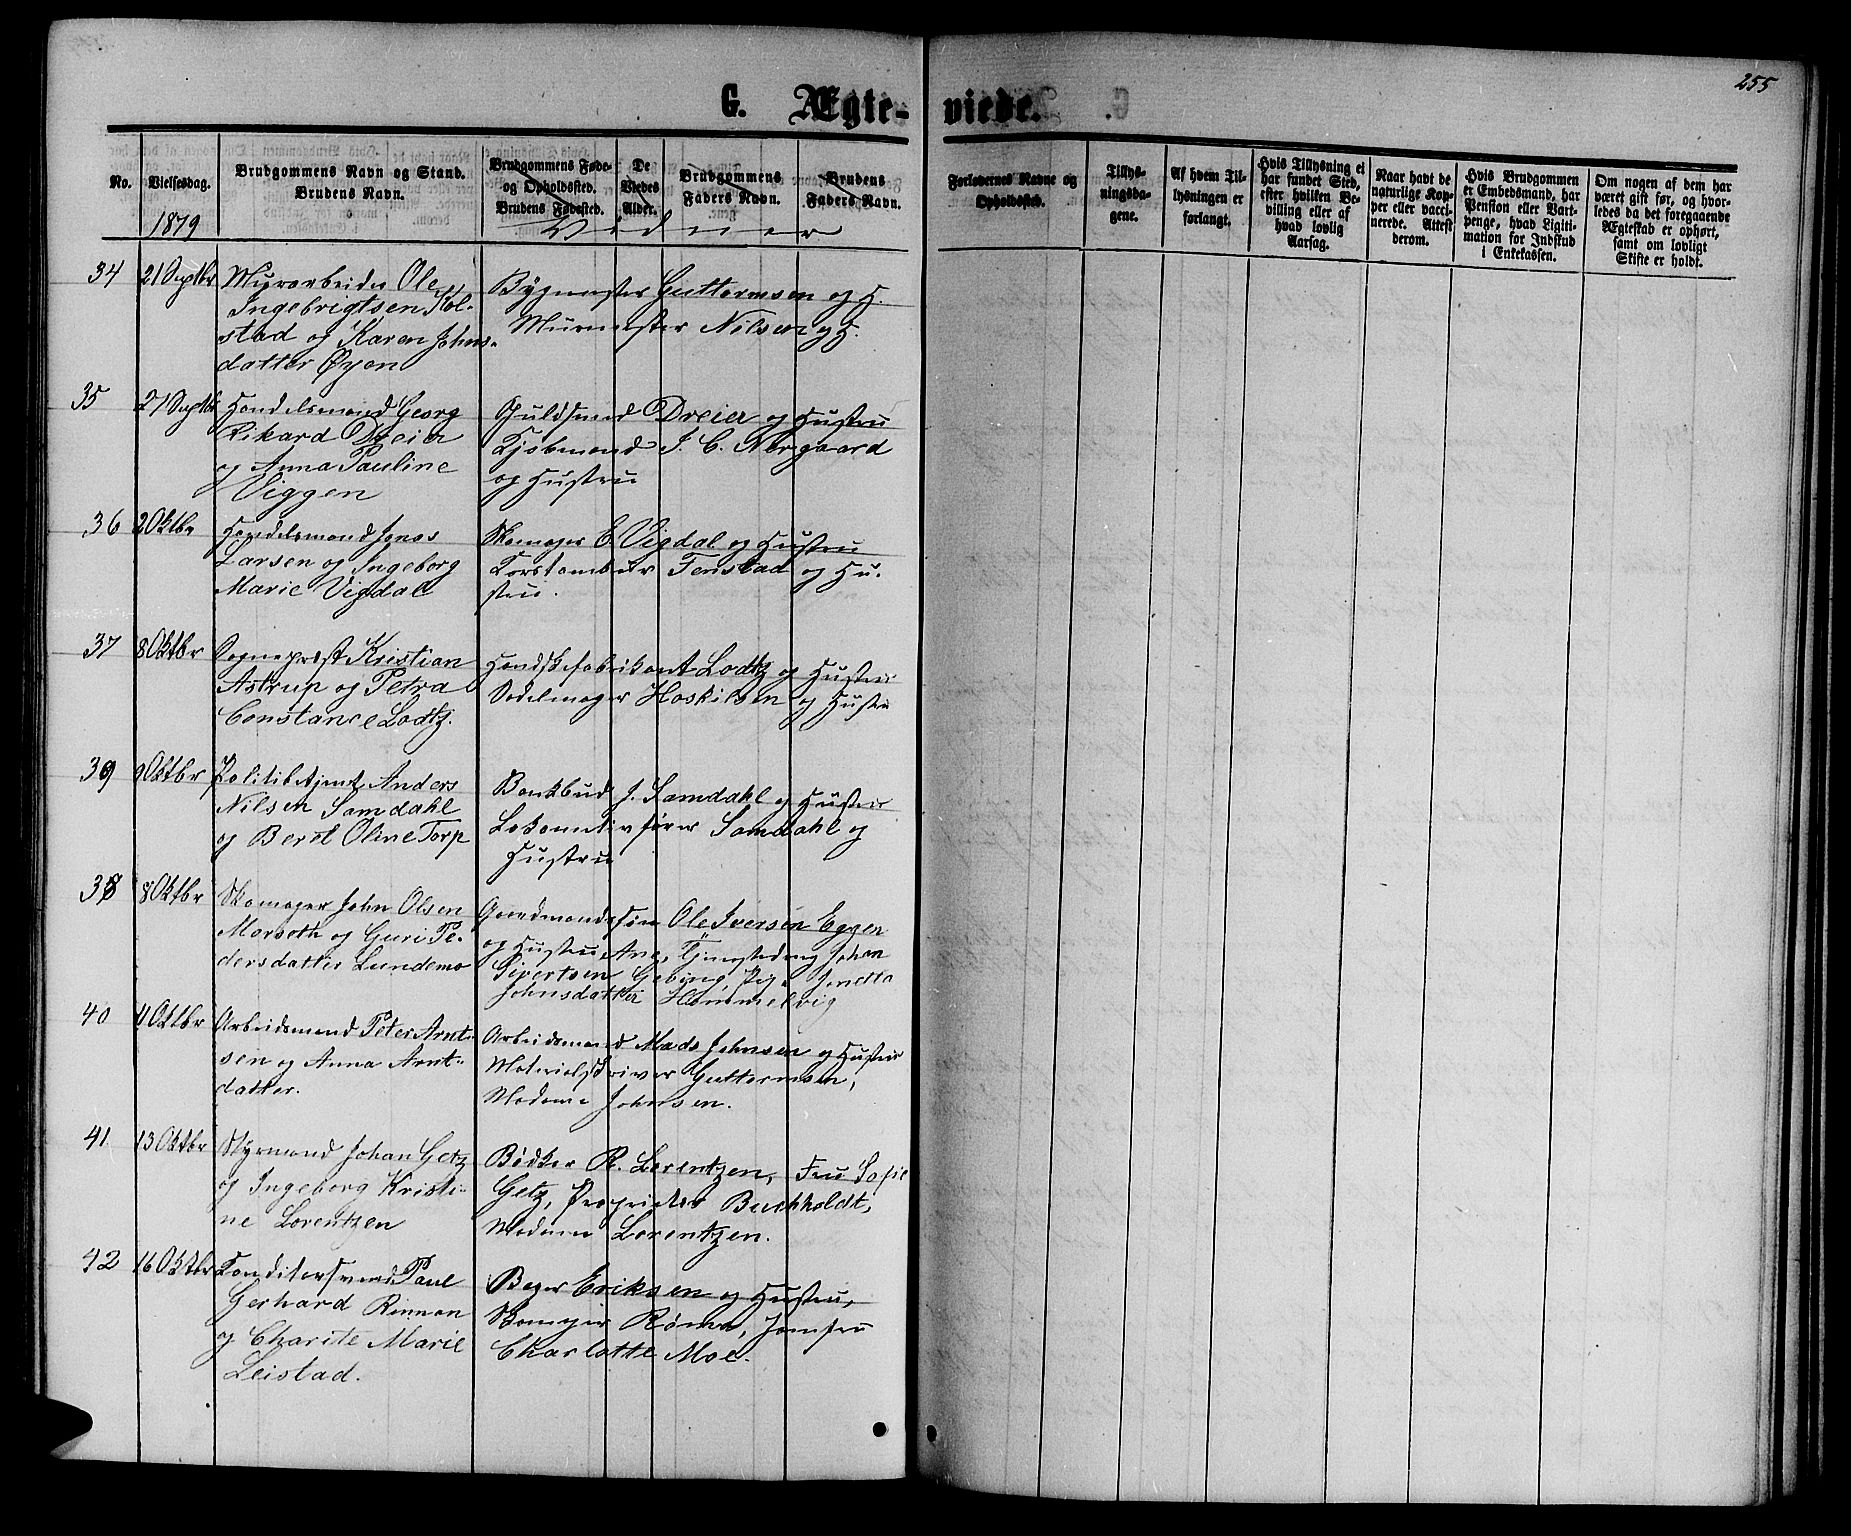 255
G. Ægte-
viede.
No.
Vielsesdag.
Brudgommens Navn og Stand.
Brudens Navn.
Brudgommens Føde-
og Opholdssted.
Brudens Fødested.
De
Viedes
Alder.
Brudgommens
Faders Navn.
Brudens
Faders Navn.
Forlovernes Navne og
Opholdssted.
Tillys-
ningsda-
gene.
Af hvem Til-
lysningen er
forlangt.
Hvis Tillysning ei
har fundet Sted,
efter hvilken Be-
villing eller af
hvad lovlig
Aarsag.
Naar havt de
naturlige Kop-
per eller vacci-
nerede. Attest
derom.
Hvis Brudgommen
er Embedsmand, har
Pension eller Vart-
penge, hvad Ligiti-
mation for Indskud
i Enkekassen.
Om nogen af dem har
været gift før, og hvor-
ledes da det foregaaende
Ægteskab er ophørt,
samt om lovligt
Skifte er holdt.
1879
Vidner
34 21 Septbr Murarbeider Ole
Ingebrigtsen Kol-
stad og Karen Johns-
datter Øyen
Bygmester Guttormsen og H.
Murmester Nilsen og H.
35 21 Septbr Handelsmand Georg
Rikard Dreier
og Anna Pauline
Viggen
Guldsmed Dreier og Hustru
Kjøbmand J. C. Nergaard
og Hustru
36 2 Oktbr Handelsmand Jonas
Larsen og Ingeborg
Marie Vigdal
Skomager E. Vigdal og Hustru
Fenstad og Hu-
stru.
37 8 Oktbr Sogneprest Kristian
Astrup og Petra
Constance Lodtz.
Handskefabrikant Lodtz og Hustru
Sadelmager Hoskilsen og Hustru
39 9 Oktbr Politibetjent Anders
Nilsen Samdahl
og Berit Oline Torp
Bankbud J. Samdahl og Hustru
Lokomotivfører Samdahl og
Hustru
38 8 Oktbr Skomager John Olsen
Marsoth og Guri Pe-
dersdatter Lundemo
Gaardmandssøn Ole Iversen Eggen
og Hustru Ane, Johan
Sivertsen Pige Jonetta
Johnsdatter Hommelvig
40 4 Oktbr Arbeidsmand Peter Arnt-
sen og Anna Arnt-
datter.
Arbeidsmand Mads Johnsen og Hustru
Materialskriver Guttormsen,
Madame Johnsen.
41 13 Oktbr Styrmand Johan Getz
og Ingeborg Kristi-
ne Lorentzen
Bødker R. Lorentzen, Fru Sofie
Getz, Proprietær Buchholdt,
Madame Lorentzen.
42 16 Oktbr Konditorsvend Paul
Gerhard Rinnan
og Charite Marie
Leistad.
Bager Eriksen og Hustru,
Skomager Jomfru
Charlotte Moe.